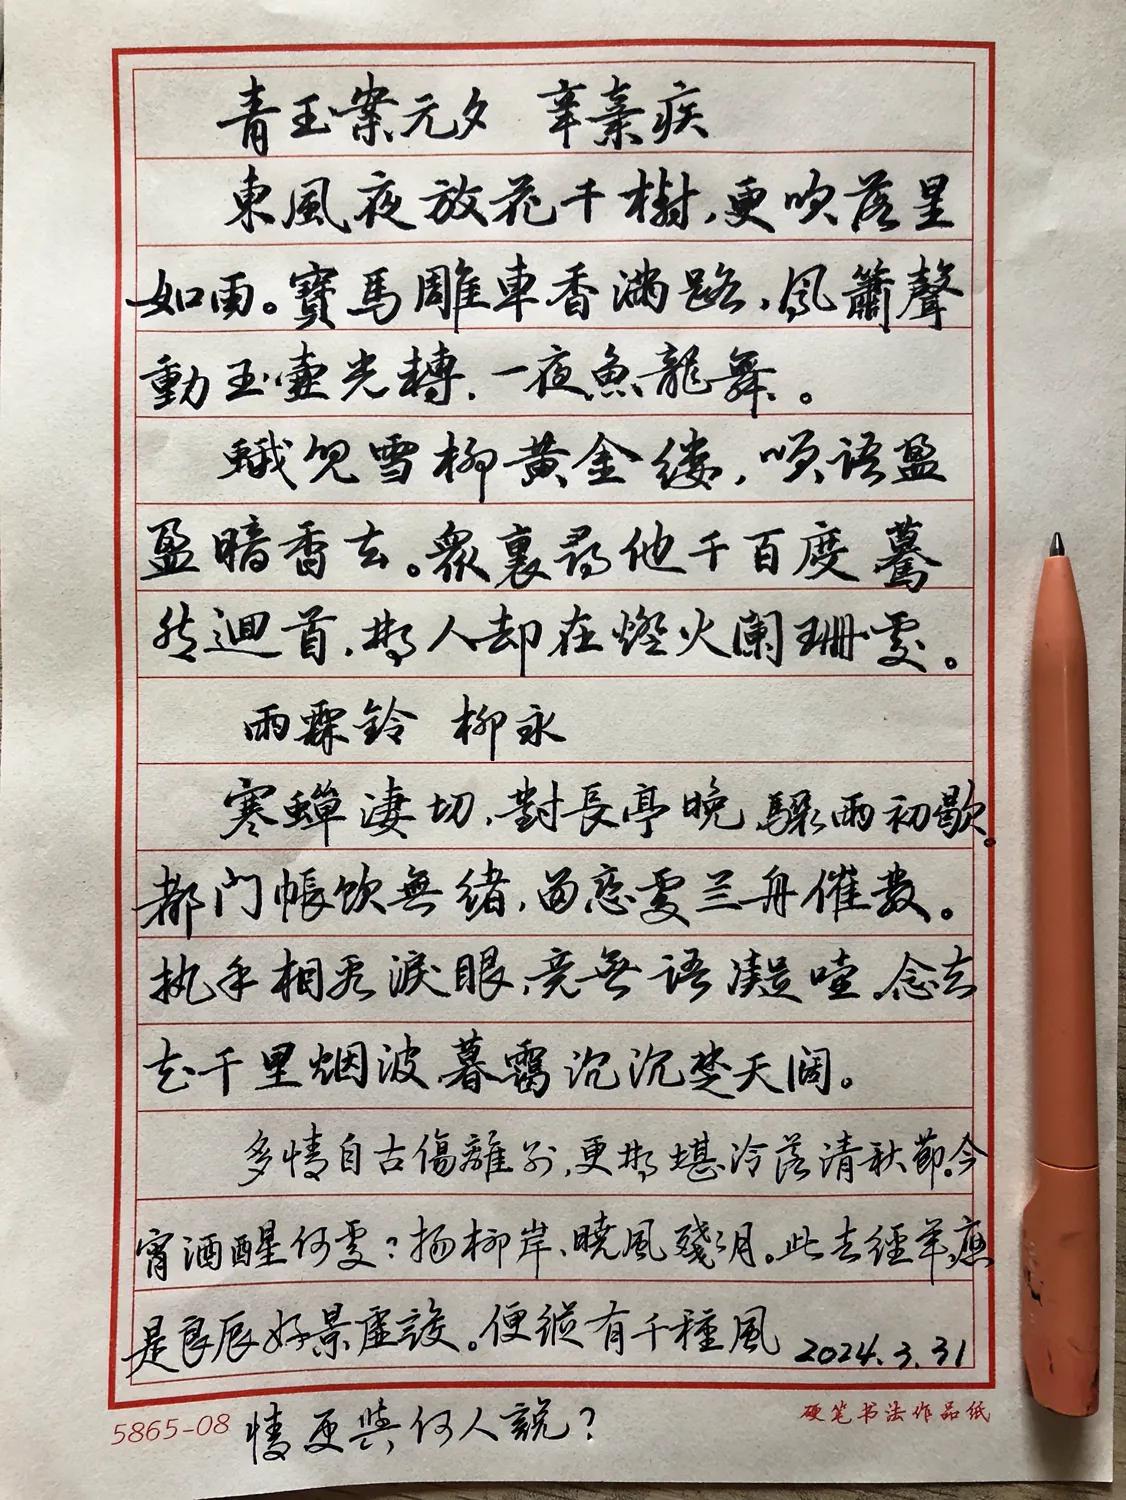 青玉案元夕 辛棄疾
東風夜放花千樹,更吹落星
如雨。寶馬雕車香滿路,風簫聲
動玉壺光轉,一夜魚龍舞。
蛾兒雪柳黄金缕,笑语盈
盈暗香去。衆裏尋他千百度驀
然迴首,那人却在燈火阑珊處。
雨霖鈴 柳永
寒蟬凄切,對長亭晚驟雨初歇。
都门帳饮無緒,留恋處兰舟催發。
执手相看淚眼,竟無语凝噎念去
去千里烟波暮靄沉沉楚天阔。
多情自古傷離别,更那堪冷落清秋節。今
宵酒醒何處?揚柳岸、曉風殘月。此去經年,應
是良辰好景虛設。便縱有千種風 2024.3.31
5865-08 情更與何人說? 硬笔书法作品纸